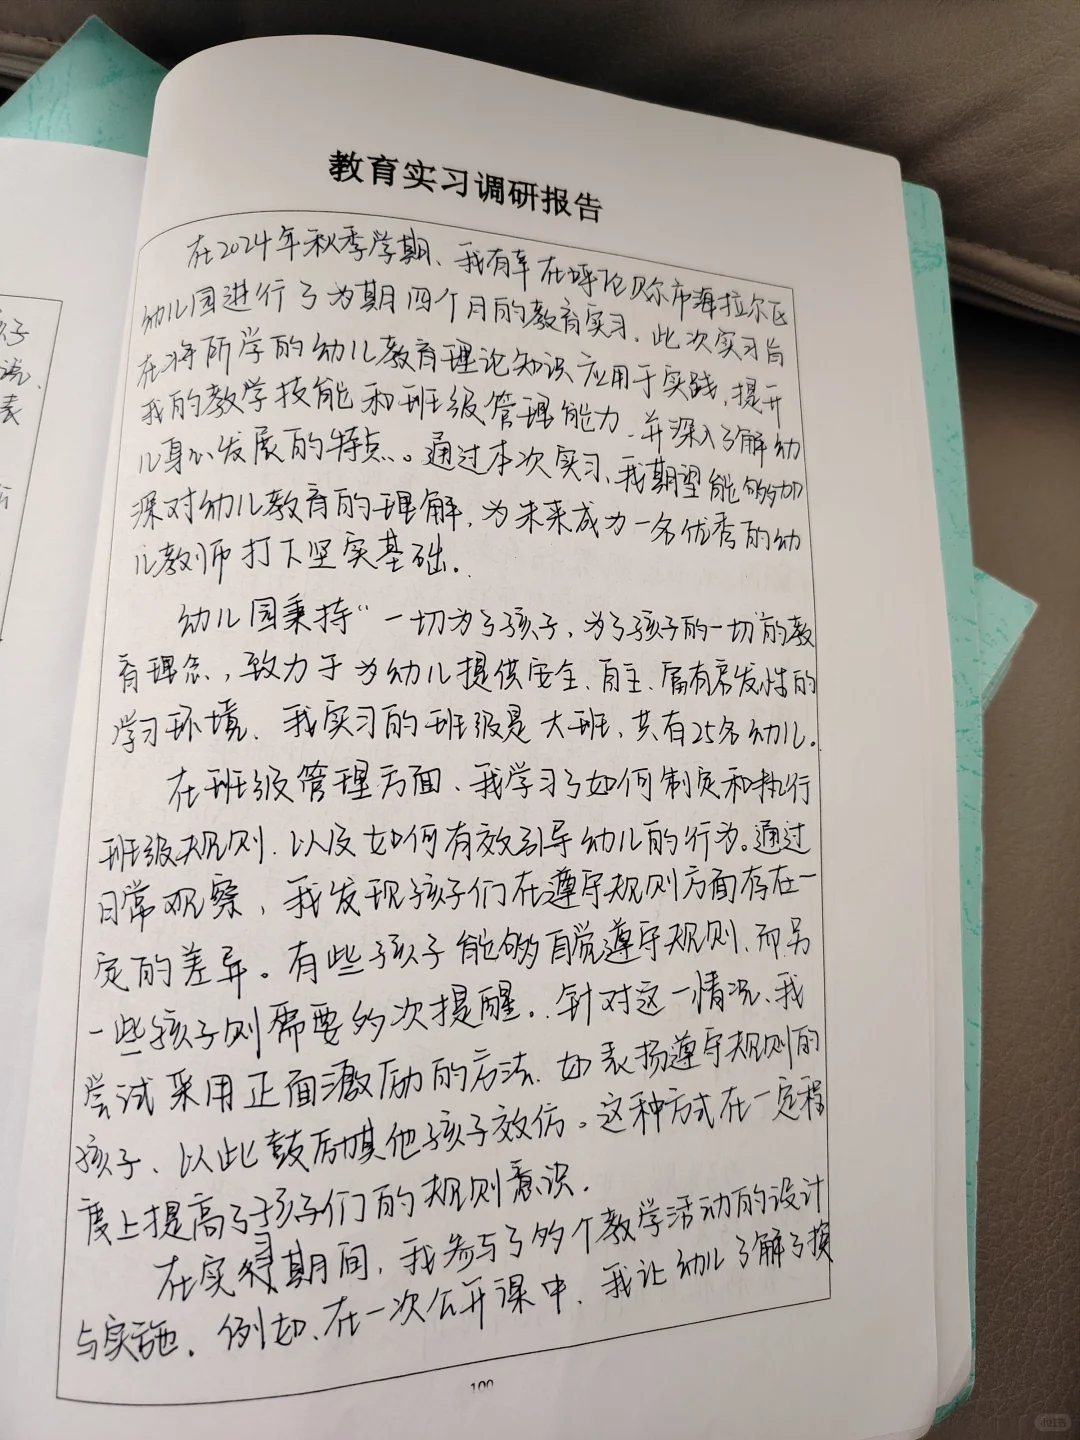 教育实习调研报告
在2024年秋季学期、我有幸在呼伦贝尔市海拉尔区
幼儿园进行了为期四个月的教育实习. 此次实习旨
在将所学的幼儿教育理论知识应用于实践,提升
我的教学技能和班级管理能力.并深入了解幼
儿身心发展的特点。通过本次实习、我期望能够加
深对幼儿教育的理解,为未来成为一名优秀的幼
儿教师打下坚实基础.
幼儿园秉持“一切为了孩子,为了孩子的一切”的教
育理念,致力于为幼儿提供安全、自主、富有启发性的
学习环境. 我实习的班级是大班、共有25名幼儿.
在班级管理方面、我学习了如何制定和执行
班级规则.以及如何有效引导幼儿的行为。通过
日常观察,我发现孩子们在遵守规则方面存在一
定的差异。有些孩子能够自觉遵守规则、而另
一些孩子则需要多次提醒.针对这一情况、我
尝试采用正面激励的方法、如表扬遵守规则的
孩子、以此鼓励其他孩子效仿。这种方式在一定程
度上提高了孩子们的规则意识.
在实习期间,我参与了多个教学活动的设计
与实施. 例如、在一次公开课中、我让幼儿了解了损
100
孩子
表
小红书